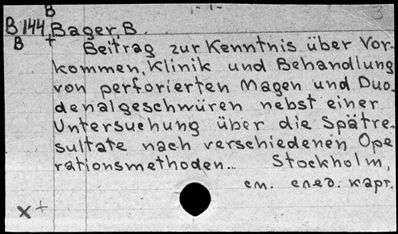 B
B 144 Bager, B.
B +
Beitrag zur Kenntnis über Vor-
kommen, Klinik und Behandlung
von perforierten Magen und Duo-
denalgeschwüren nebst einer
Untersuchung über die Spätre-
sultate nach verschiedenen Ope
rationsmethoden... Stockholm,
см. след. карт.
x +